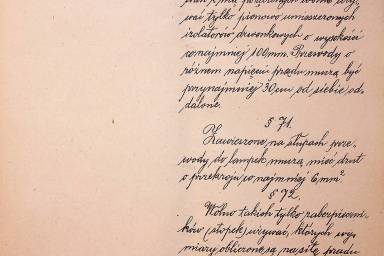 wać tylko pionowo umieszczonych
izolatorów dzwonkowych o wysokości
conajmniej 100 mm. Przewody o
różnem napięciu prądu muszą być
przynajmniej 30 cm od siebie od-
dalone.
§ 71.
Zawieszone na słupach prze-
wody do lampek muszą mieć drut
o przekroju conajmniej 6 mm².
§ 72.
Wolno takich tylko zabezpieczni-
ków (stopek) używać, których wy-
miary obliczone są na siłę prądu